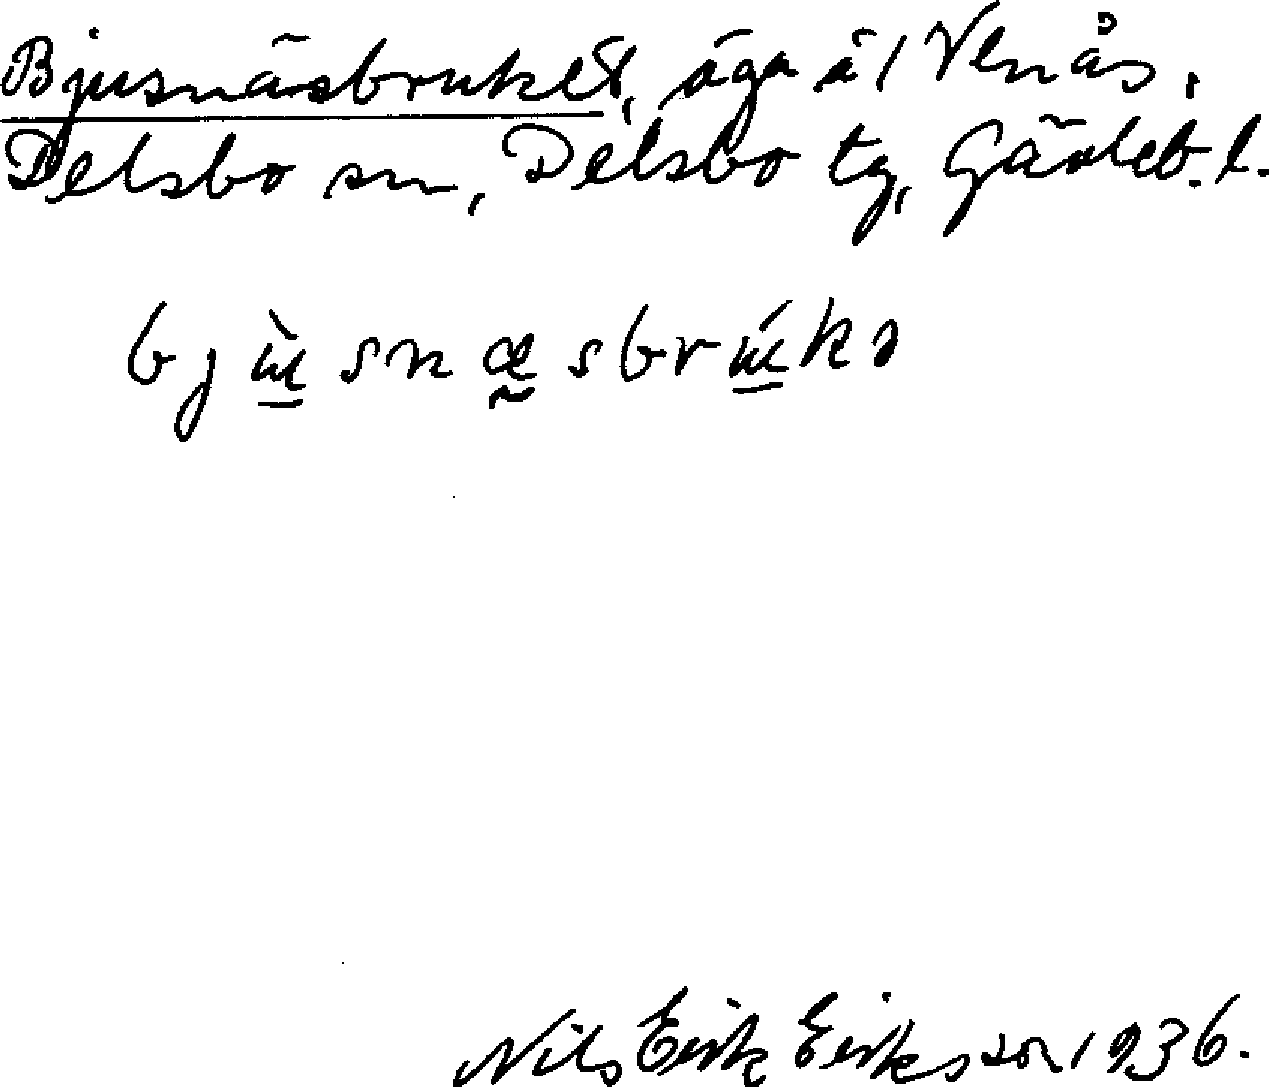 Bjusnäsbruket, äga å 1 Venås,
Delsbo sn, Delsbo tg, Gävleb. l.
bjùsnæsbrúkə
Nils Erik Eriksson 1936.